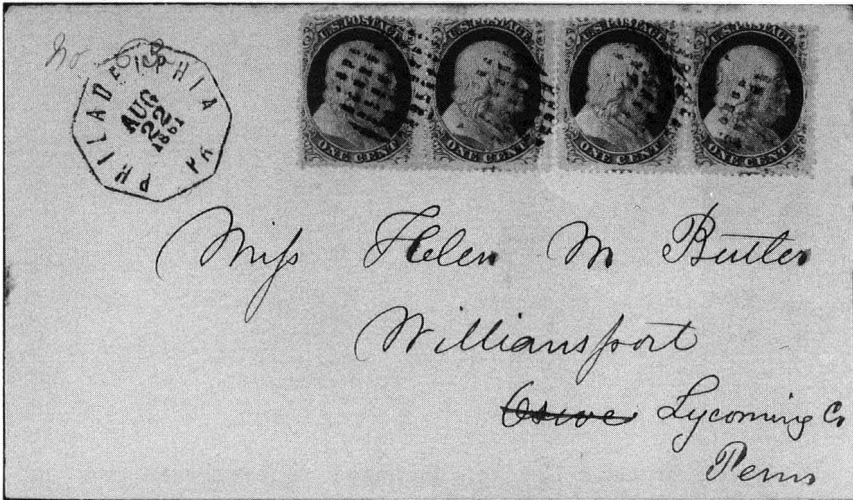 No. 68
PHILADELPHIA PA
AUG
22
1861
U.S. POSTAGE ONE CENT
U.S. POSTAGE ONE CENT
U.S. POSTAGE ONE CENT
U.S. POSTAGE ONE CENT
Miss Helen M Butler
Williamsport
Lycoming Co
Penn